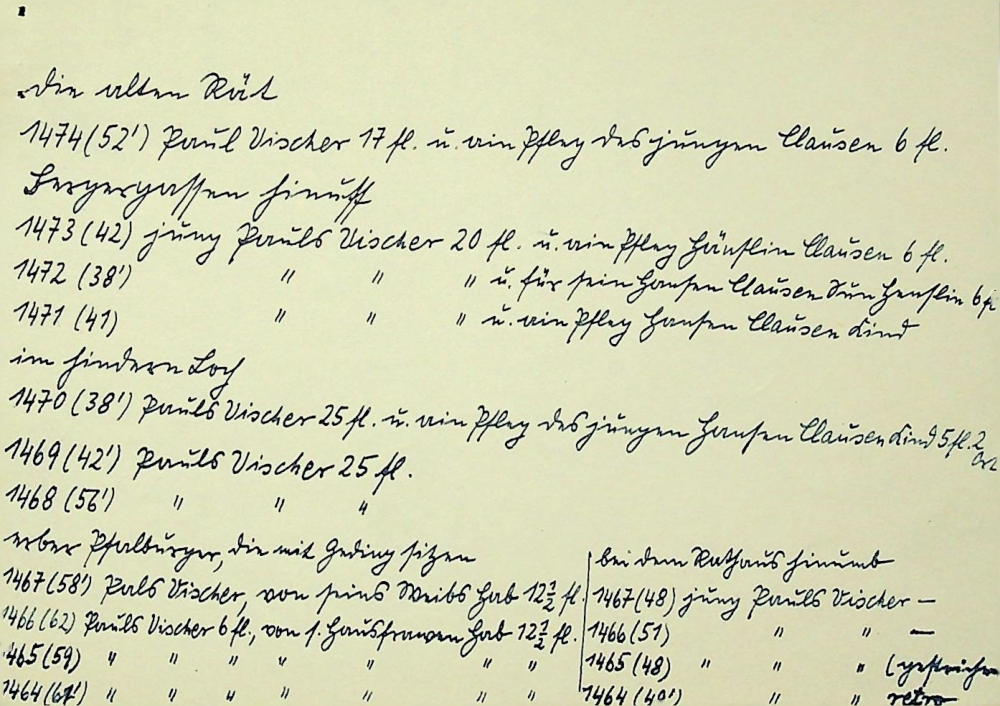 die alten Rät
1474 (52') Paul Vischer 17 fl. u. ain Pfleg des jungen Clausen 6 fl.
Bergergassen hinuff
1473 (42) jung Pauls Vischer 20 fl. u. ain Pfleg Hänslin Clausen 6 fl.
1472 (38') " " " u. für sein Hansen Clausen Sun Henslin 6 fl
1471 (41) " " " u. ain Pfleg Hansen Clausen Kind
im hindern Loch
1470 (38') Pauls Vischer 25 fl. u. ain Pfleg des jungen Hansen Clausen Kind 5 fl. 2 Ort
1469 (42') Pauls Vischer 25 fl.
1468 (56') " " "
erber Pfalburger, die mit Geding sitzen
1467 (58') Pals Vischer, von seins Weibs Hab 12 1/2 fl.
1466 (62) Pauls Vischer 6 fl., von s. Hausfrawen Hab 12 1/2 fl.
1465 (59) " " " " " " "
1464 (61') " " " " " " "
bei dem Rathaus hinumb
1467 (48) jung Pauls Vischer —
1466 (51) " " —
1465 (48) " " " (gestrichen
1464 (40') " " retro